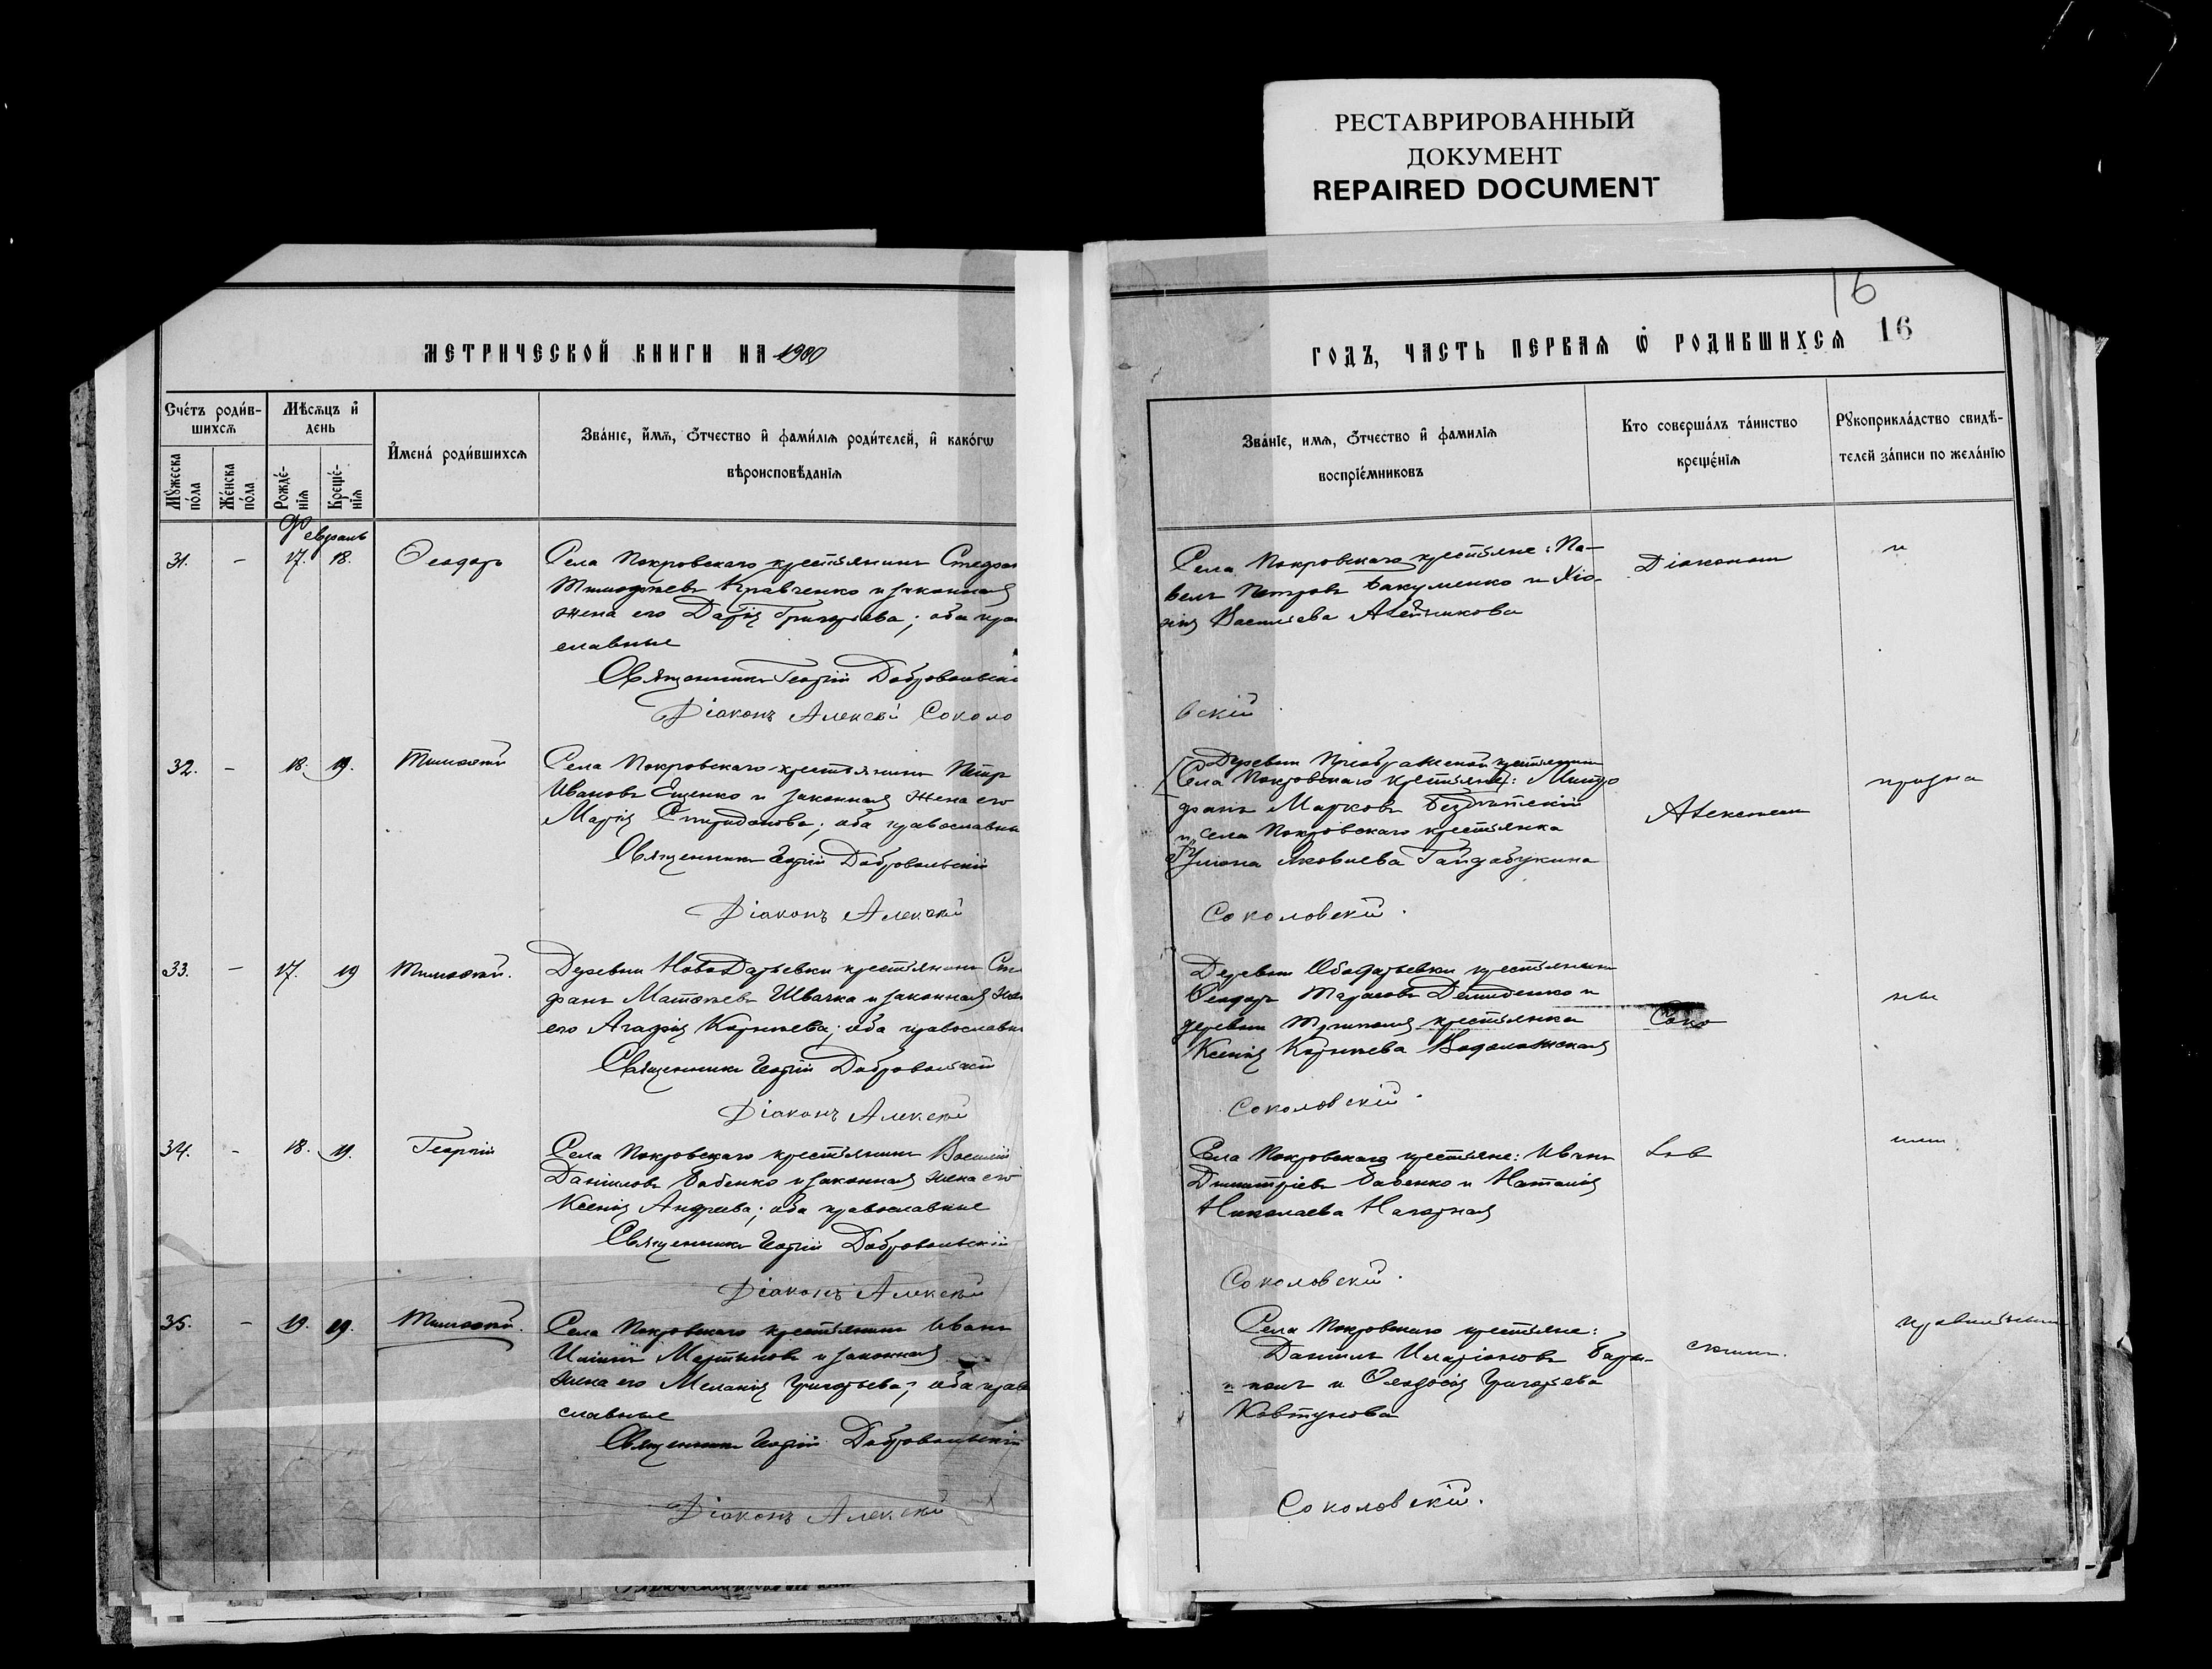 РЕСТАВРИРОВАННЫЙ
ДОКУМЕНТ
REPAIRED DOCUMENT
16
МЕТРИЧЕСКОЙ КНИГИ НА 1900
ГОДЪ, ЧАСТЬ ПЕРВАѦ Ѡ РОДИВШИХСѦ 16
Счéтъ роди́в-
шихсѧ
Мѣ́сѧцъ и҆
день
Мꙋ́жеска
по́ла
Же́нска
по́ла
Рожде́-
нїѧ
Креще́-
нїѧ
И҆мена́ роди́вшихсѧ
Зва́нїе, и҆́мѧ, ѻ҆́тчество и҆ фами́лїѧ роди́телей, и҆ како́гѡ
вѣроисповѣ́данїѧ
Зва́нїе, имѧ, ѻ҆́тчество и҆ фамилїѧ
воспрїе́мниковъ
Кто соверша́лъ та́инство
креще́нїѧ
Рꙋкоприкла́дство свидѣ́-
телей за́писи по жела́нїю
Февраль
31. – 17. 18. Ѳеодоръ
Села Покровскаго крестьянинъ Стефан
Тимофеевъ Кравченко и законная
жена его Дарія Григорьева; оба пра
славные
Священникъ Георгій Добровольскі
Діаконъ Алексѣй Соколо
Села Покровскаго крестьяне: Па-
велъ Петровъ Бакуменко и
Васильева
Діакономъ
и
вскій
32. – 18. 19. Тимоѳей
Села Покровскаго крестьянинъ Петръ
Ивановъ Ещенко и законная жена его
Марія Спиридонова; оба православны
Священникъ Георгій Добровольскій
Діаконъ Алексѣй
Деревни Преображенской крестьянинъ
Села Покровскаго крестьяне: Митро
фанъ Марковъ
и села Покровскаго крестьянка
Яковлева Гайдабукина
Алексѣем
призна
Соколовскій.
33. – 17. 19 Тимоѳей.
Деревни НовоДарьевки крестьянинъ Сте
фанъ Матѳеевъ Швачка и законная жен
его Агафія Корнѣева; оба православны
Священникъ Георгій Добровольскій
Діаконъ Алексѣй
Деревни крестьянинъ
Ѳеодоръ Тарасовъ Демиденко и
деревни крестьянка
Ксенія Корнѣева Водолажская
Соко
ны
Соколовскій.
34. – 18. 19. Георгій
Села Покровскаго крестьянинъ Василій
Даніиловъ Бабенко и законная жена его
Ксенія Андреева; оба православные
Священникъ Георгій Добровольскій
Діаконъ Алексѣй
Села Покровскаго крестьяне: Иванъ
Димитріевъ Бабенко и Наталія
Николаева Нагорная
лов
ими
Соколовскій.
35. – 19. 19. Тимоѳей.
Села Покровскаго крестьянинъ Иванъ
Иліинъ Мартыновъ и законная
жена его Меланія Григорьева; оба прав
славные
Священникъ Георгій Добровольскій
Діаконъ Алексѣй
Села Покровскаго крестьяне:
Даніилъ Иларіоновъ
и Ѳеодосія Григорьева
Ковтунова
скимъ.
правильным
Соколовскій.